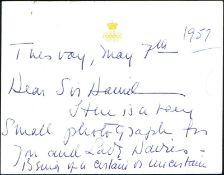 1957
Tuesday, May 7th
Dear Sir Daniel
Here is a very
small photograph for
you and Lady Davies -
Being of a certain or uncertain